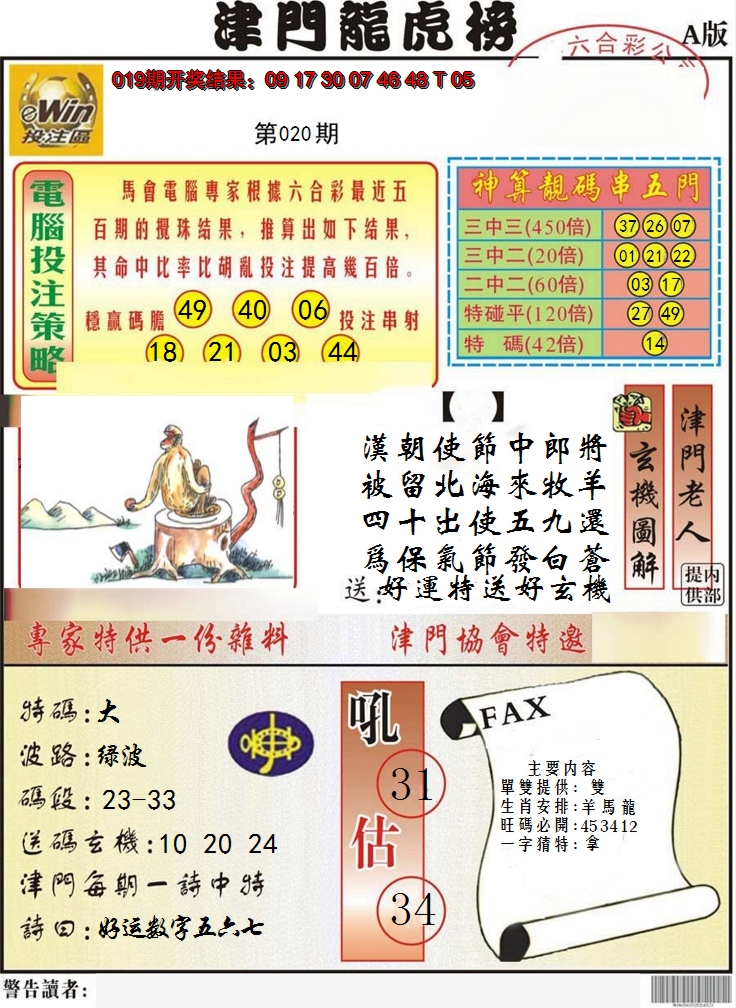 津門龍虎榜
六合彩公
A版
eWin
投注區
019期开奖结果：09 17 30 07 46 48 T 05
第020期
電腦投注策略
馬會電腦專家根據六合彩最近五
百期的攪珠结果，推算出如下结果，
其命中比率比胡亂投注提高幾百倍。
穩贏碼膽 49 40 06 投注串射
18 21 03 44
神算靚碼串五門
三中三(450倍) 37 26 07
三中二(20倍) 01 21 22
二中二(60倍) 03 17
特碰平(120倍) 27 49
特 碼(42倍) 14
【 】
漢朝使節中郎將
被留北海來牧羊
四十出使五九還
爲保氣節發白蒼
送:好運特送好玄機
玄機圖解
津門老人
内部提供
專家特供一份雜料
津門協會特邀
特碼:大
波路:绿波
碼段:23-33
送碼玄機:10 20 24
津門每期一詩中特
詩曰:好运数字五六七
吼
31
估
34
FAX
主要内容
單雙提供: 雙
生肖安排:羊馬龍
旺碼必開:453412
一字猜特:拿
警告讀者: